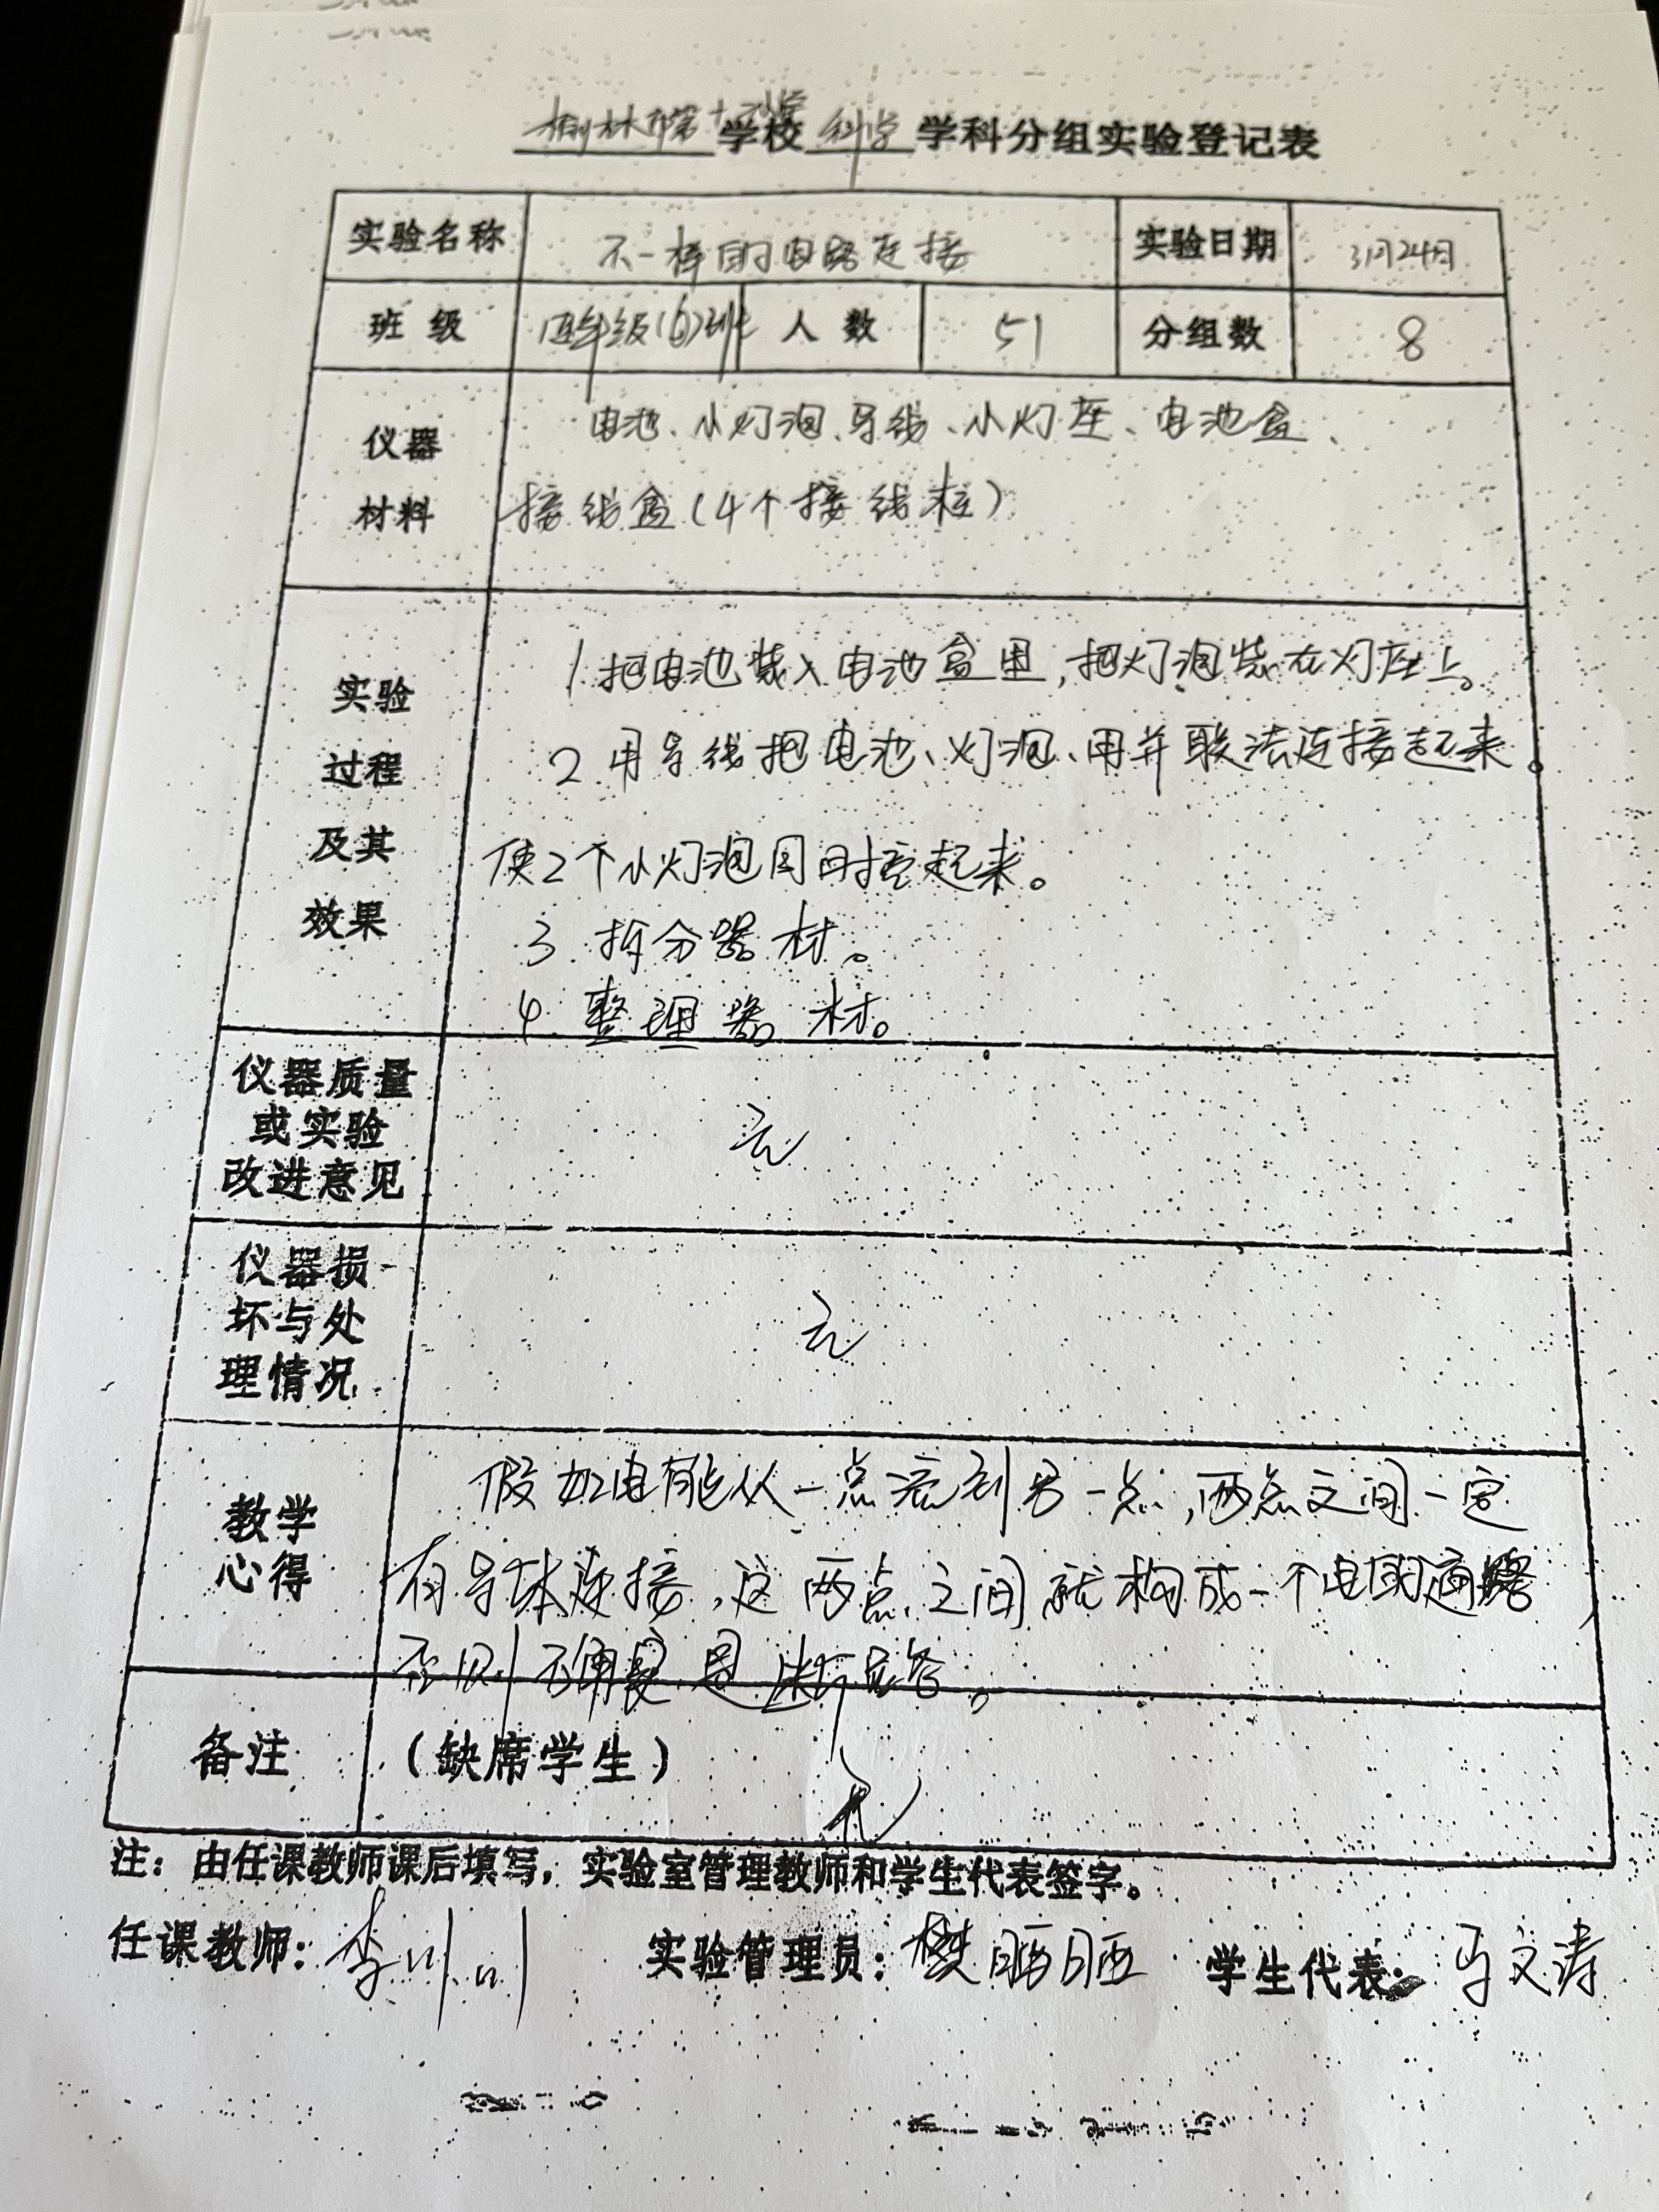 榆林市第十二小学学校科学学科分组实验登记表
实验名称 不一样的电路连接 实验日期 3月24日
班级 四年级(6)班 人数 51 分组数 8
仪器材料 电池、小灯泡、导线、小灯座、电池盒、
接线盒(4个接线柱)
实验过程及其效果 1.把电池装入电池盒里,把灯泡装在灯座上。
2 用导线把电池、灯泡、用并联法连接起来。
使2个小灯泡同时亮起来。
3.拆分器材。
4.整理器材。
仪器质量或实验改进意见 无
仪器损坏与处理情况 无
教学心得 假如电能从一点流到另一点,两点之间一定
有导体连接,这两点之间就构成一个电通路,
否则不是断路。
备注 (缺席学生) 无
注:由任课教师课后填写,实验室管理教师和学生代表签字。
任课教师:李 实验管理员:樊晒晒 学生代表:马文涛